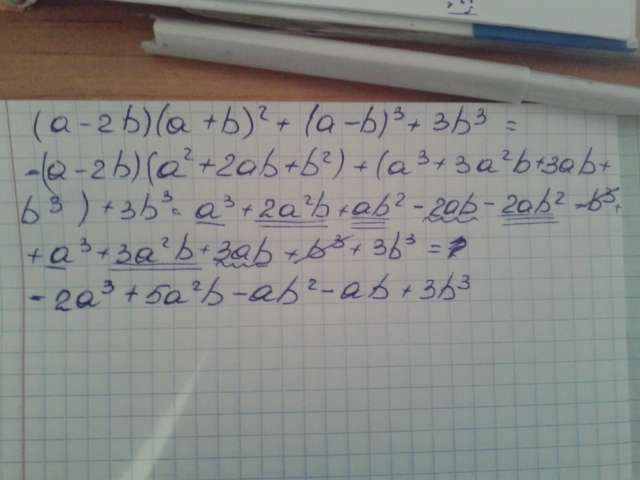 (a-2b)(a+b)²+(a-b)³+3b³=
-(a-2b)(a²+2ab+b²)+(a³+3a²b+3ab+
b³)+3b³=a³+2a²b+ab²-2ab-2ab²-b³+
+a³+3a²b+3ab+b³+3b³=
-2a³+5a²b-ab²-ab+3b³